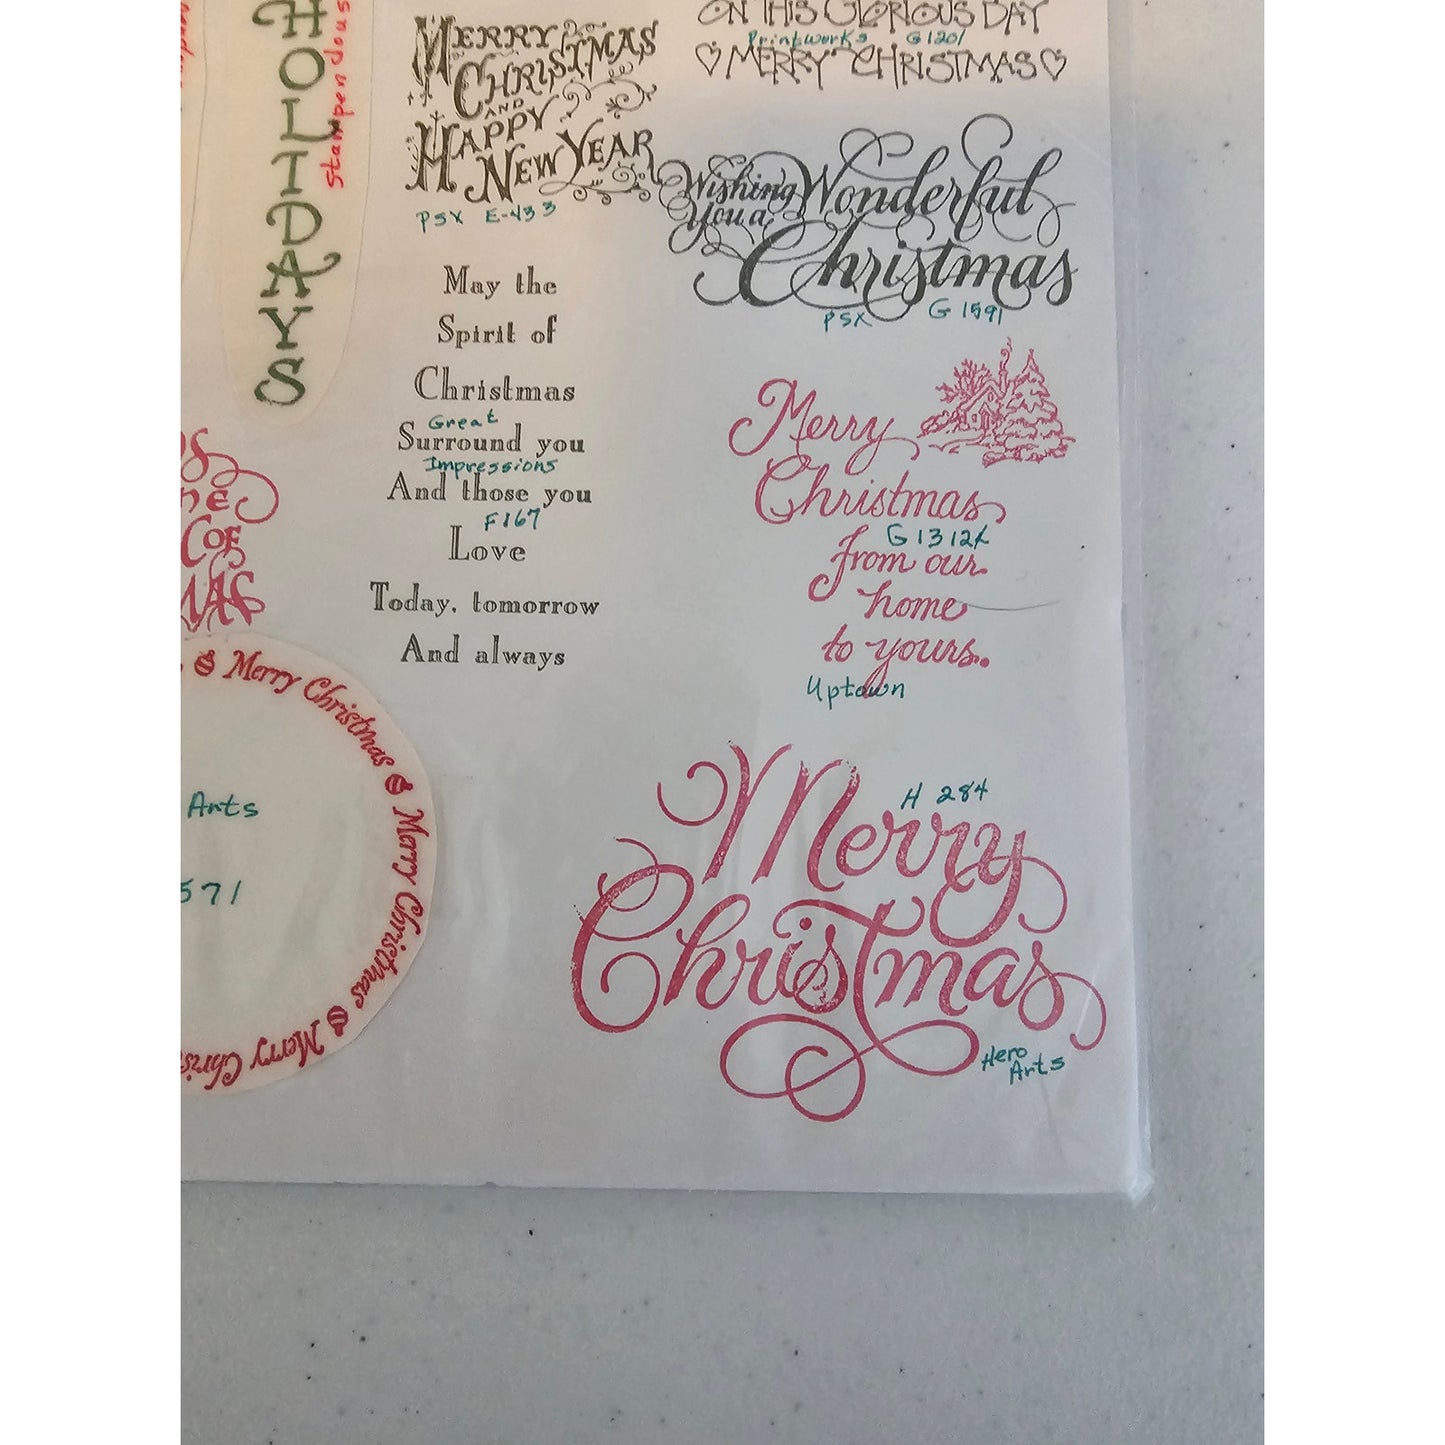 HOLIDAYS
stampendous
MERRY
CHRISTMAS
AND
HAPPY
NEW YEAR
PSX E-433
ON THIS GLORIOUS DAY
Printworks G1201
♡MERRY CHRISTMAS♡
Wishing
You a
Wonderful
Christmas
PSX G 1591
May the
Spirit of
Christmas
Great
Surround you
Impressions
And those you
F167
Love
Today, tomorrow
And always
Merry
Christmas
G1312X
from our
home
to yours.
Uptown
Merry Christmas
Merry Christmas
Merry Chris
Arts
571
H 284
Merry
Christmas
Hero
Arts